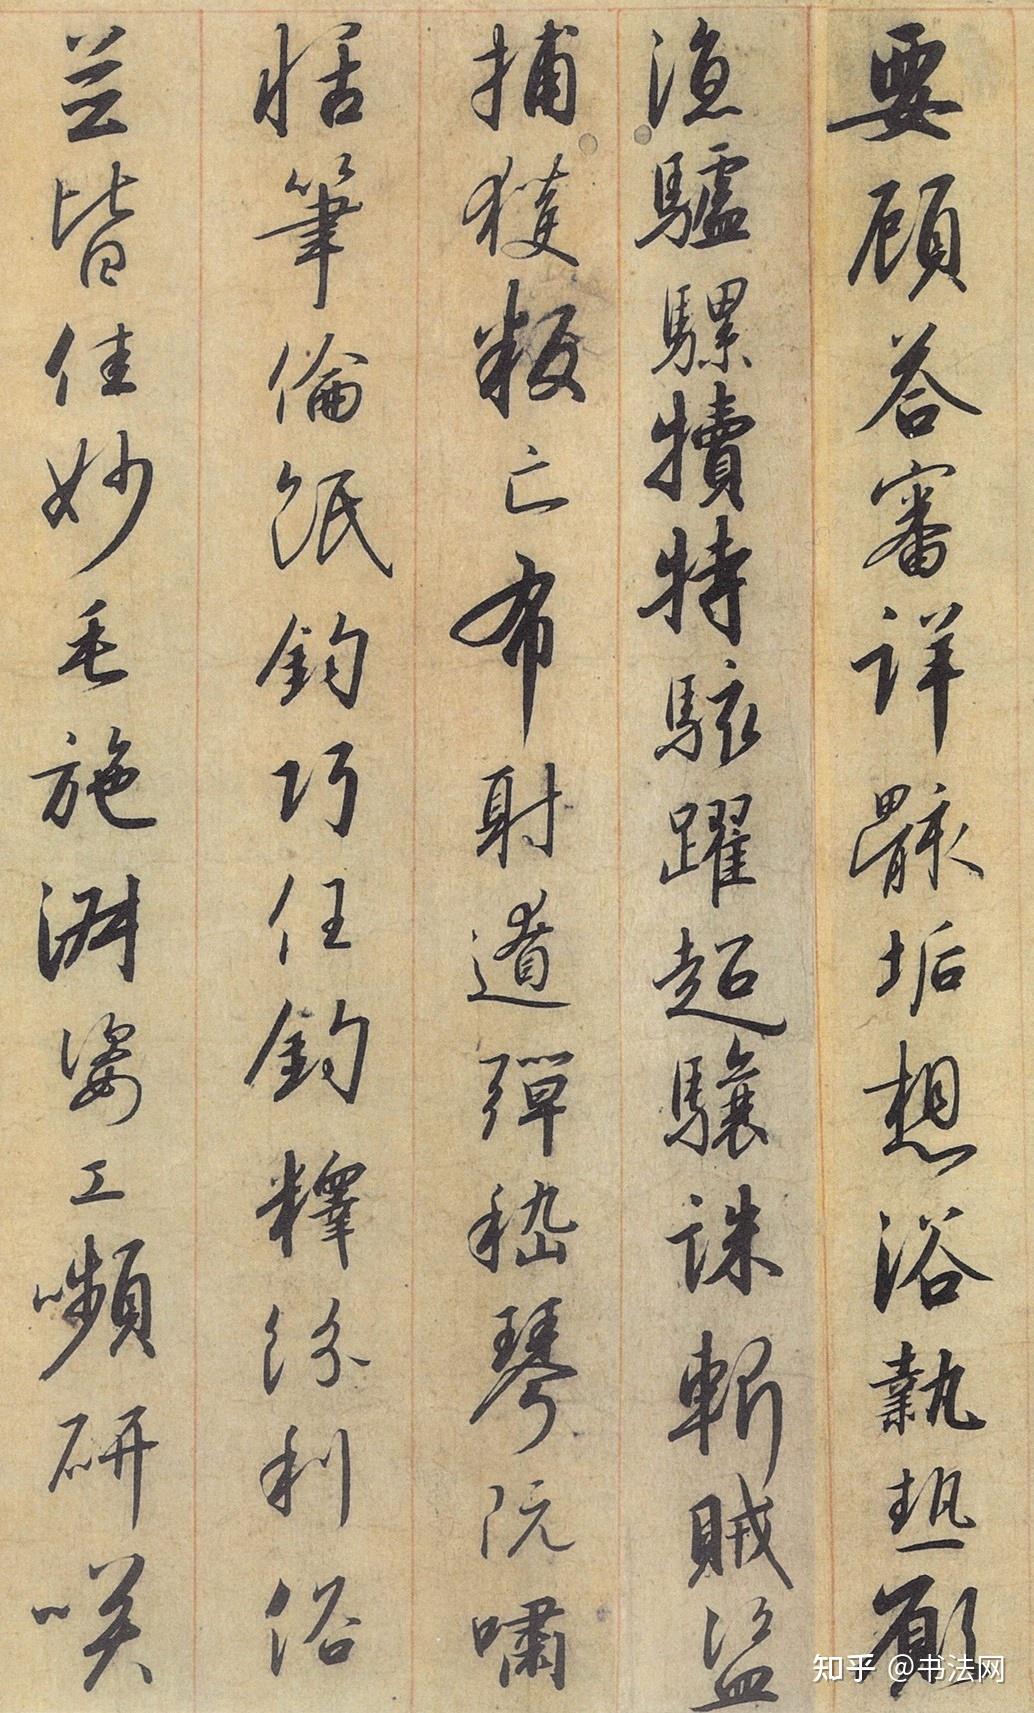 要顾荅審詳骸垢想浴執热願
涼驢騾犢特駭躍超驤誅斬賊盗
捕獲叛亡布射遼彈嵇琴阮嘯
恬筆倫紙鈞巧任鈞釋紛利俗
並皆佳妙毛施淑姿工嚬研咲
知乎 @书法网